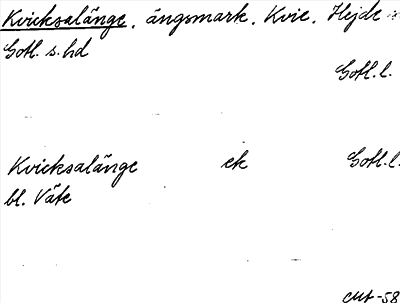 Kvicksalänge, ängsmark. Kvie, Hejde
Gotl. s. hd
Gotl. l.
Kvicksalänge ek Gotl. l.
bl. Väte
-58